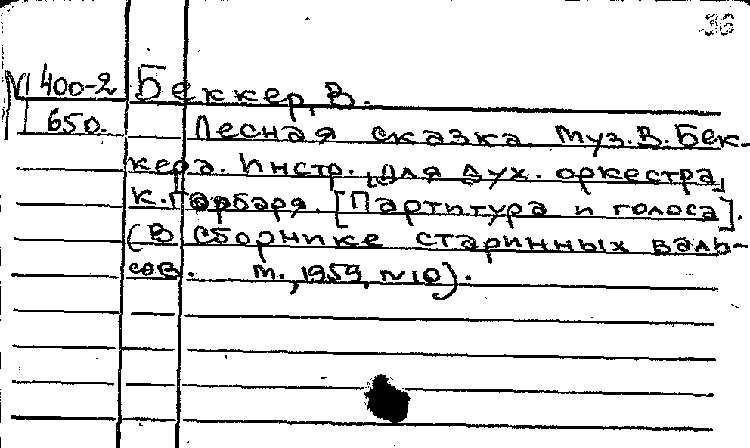 36
М 400-2 Беккер, В.
650. Лесная сказка. Муз. В. Бек-
кера. Инстр. [для дух. оркестра]
К. Гарбаря. [Партитура и голоса].
(В сборнике старинных валь-
сов. М., 1959, №10).